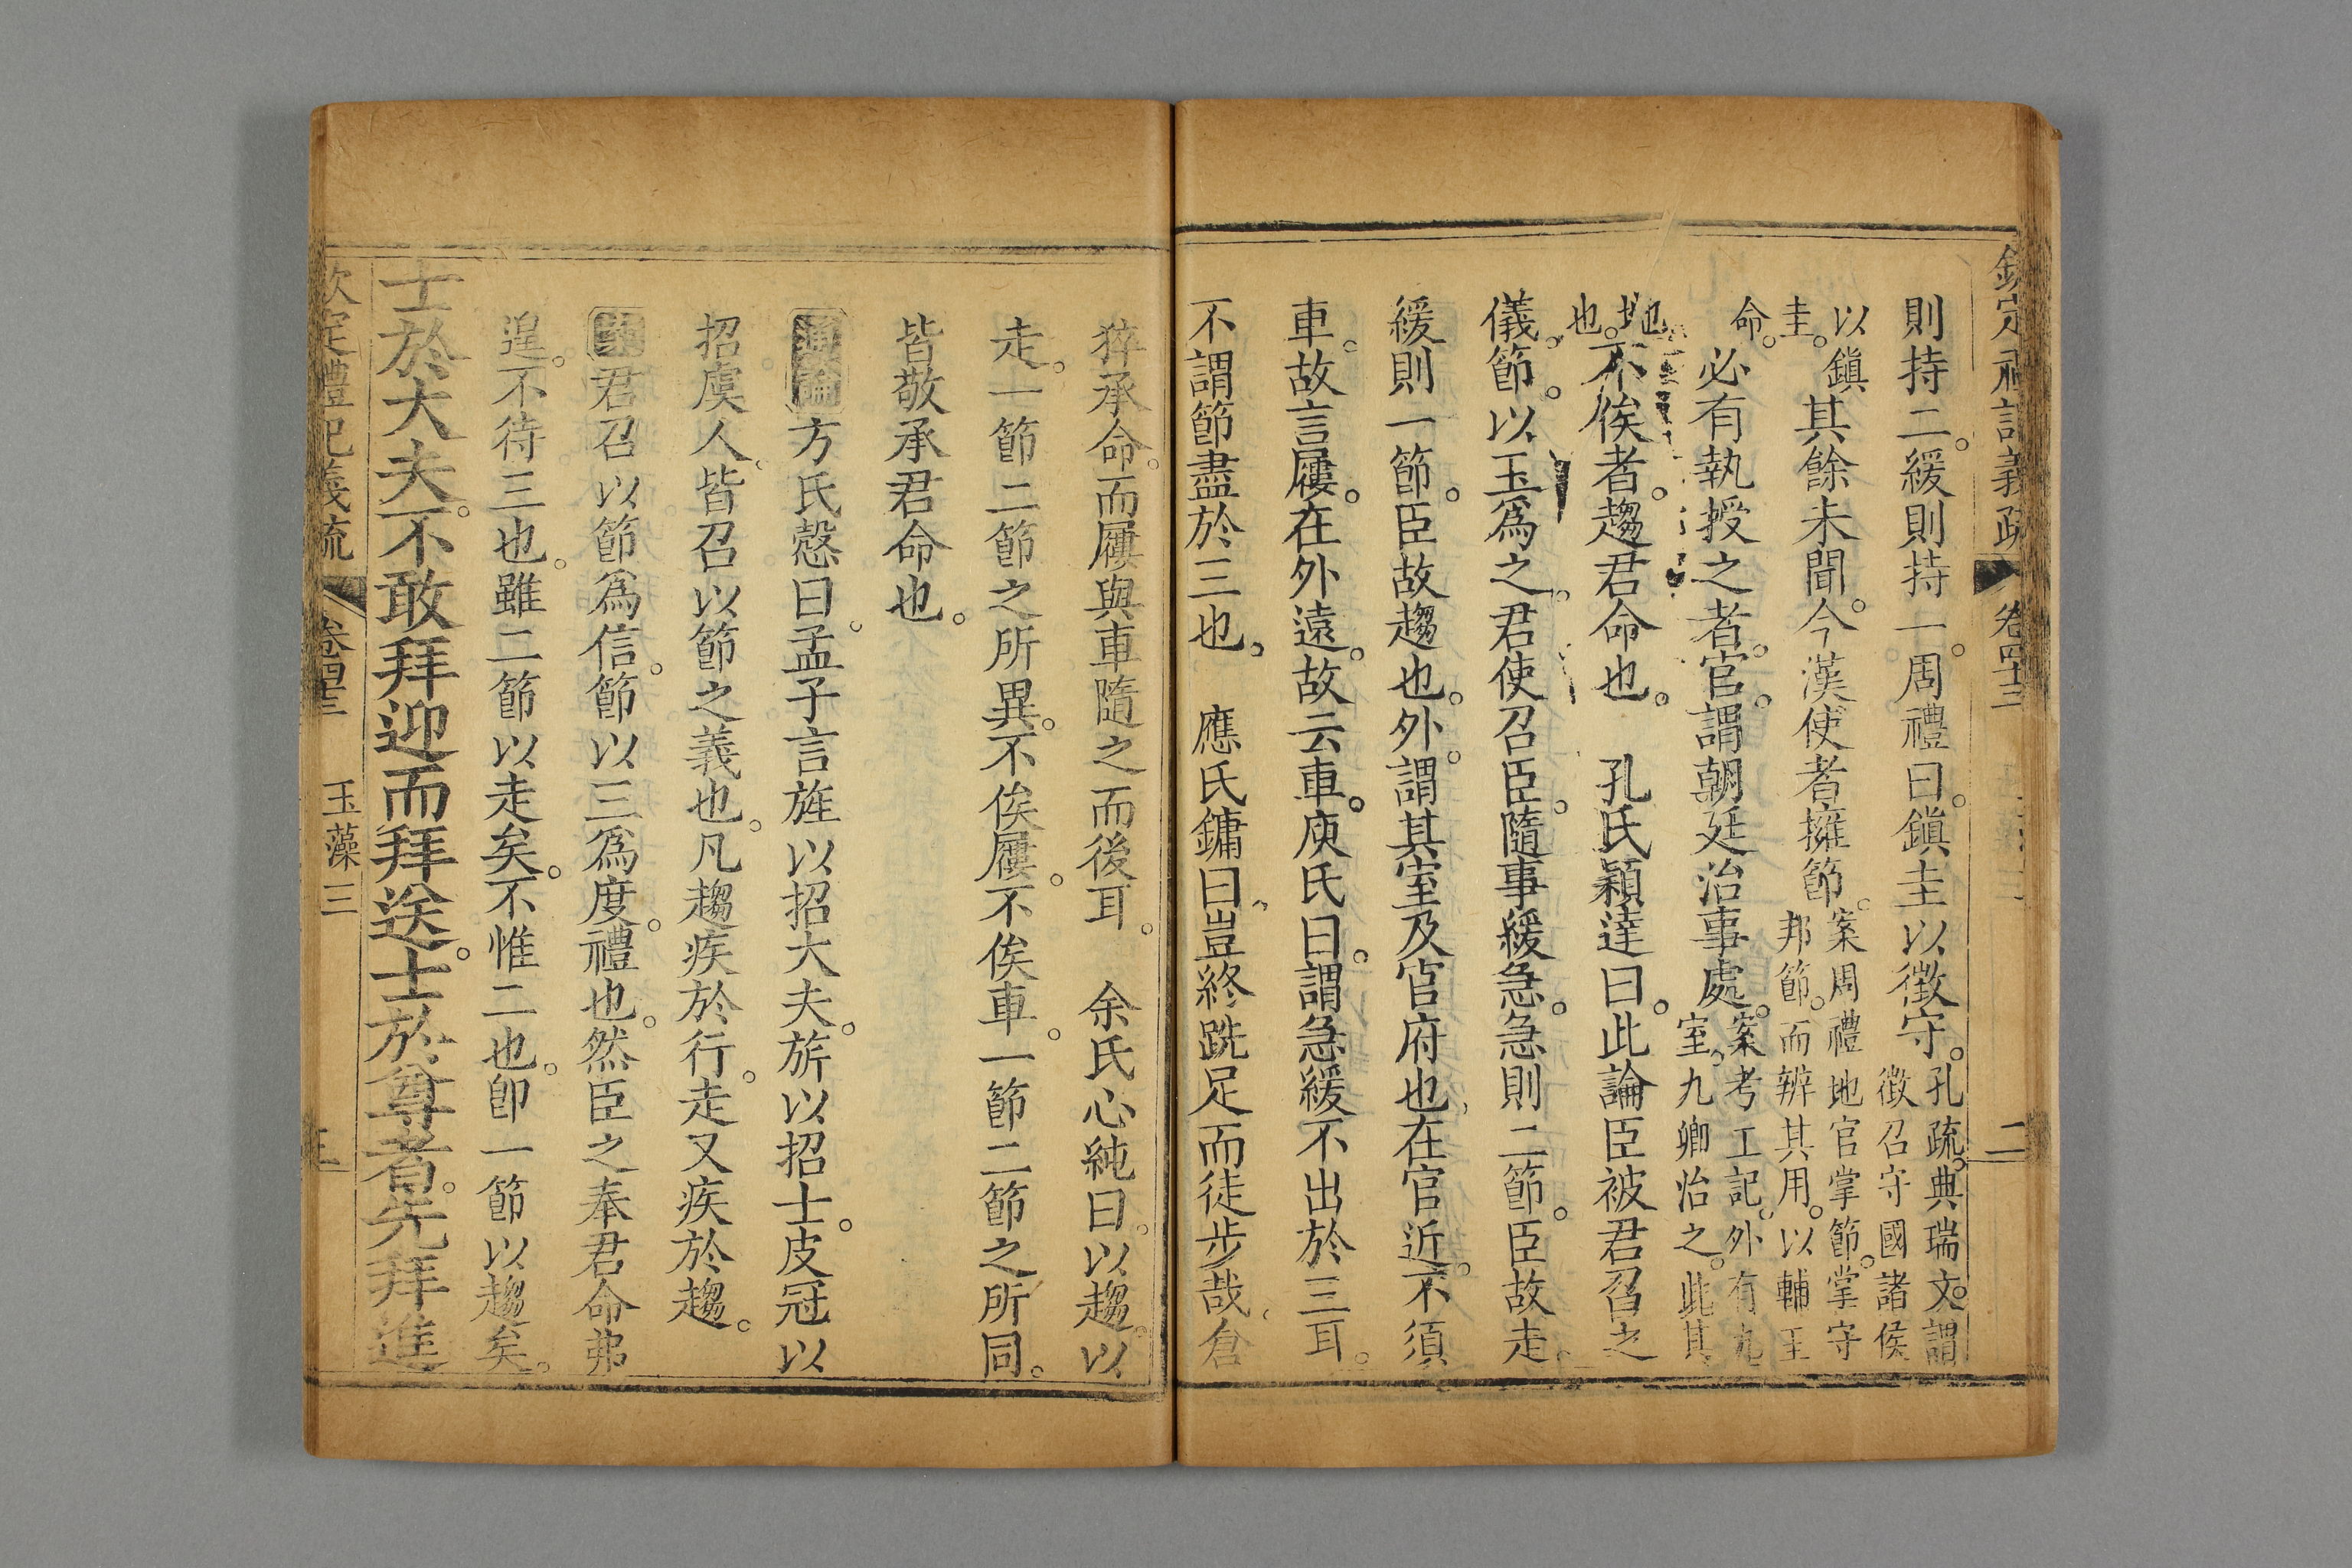 欽定禮記義疏 卷四十三 二
則持二。緩則持一。周禮曰。鎭圭以徵守。孔疏。典瑞文。謂徵召守國諸侯
以鎭圭。其餘未聞。今漢使者擁節。案周禮地官掌節。掌守邦節。而辨其用。以輔王
命。必有執授之者。官。謂朝廷治事處。案考工記。外有九室。九卿治之。此其
地也。不俟者。趨君命也。 孔氏穎達曰。此論臣被君召之
儀節。以玉爲之。君使召臣。隨事緩急。急則二節。臣故走。
緩則一節。臣故趨也。外。謂其室及官府也。在官近。不須
車。故言屨。在外遠。故云車。庾氏曰。謂急緩不出於三耳。
不謂節盡於三也。 應氏鏞曰。豈終跣足而徒步哉。倉
猝承命。而屨與車隨之而後耳。 余氏心純曰。以趨。以
走。一節二節之所異。不俟屨。不俟車。一節二節之所同。
皆敬承君命也。
通論方氏慤曰。孟子言旌以招大夫。旂以招士。皮冠以
招虞人。皆召以節之義也。凡趨疾於行。走又疾於趨。
君召以節爲信。節以三爲度。禮也。然臣之奉君命弗
遑。不待三也。雖二節以走矣。不惟二也。卽一節以趨矣。
士於大夫。不敢拜迎而拜送。士於尊者。先拜進
欽定禮記義疏 卷四十三 玉藻三